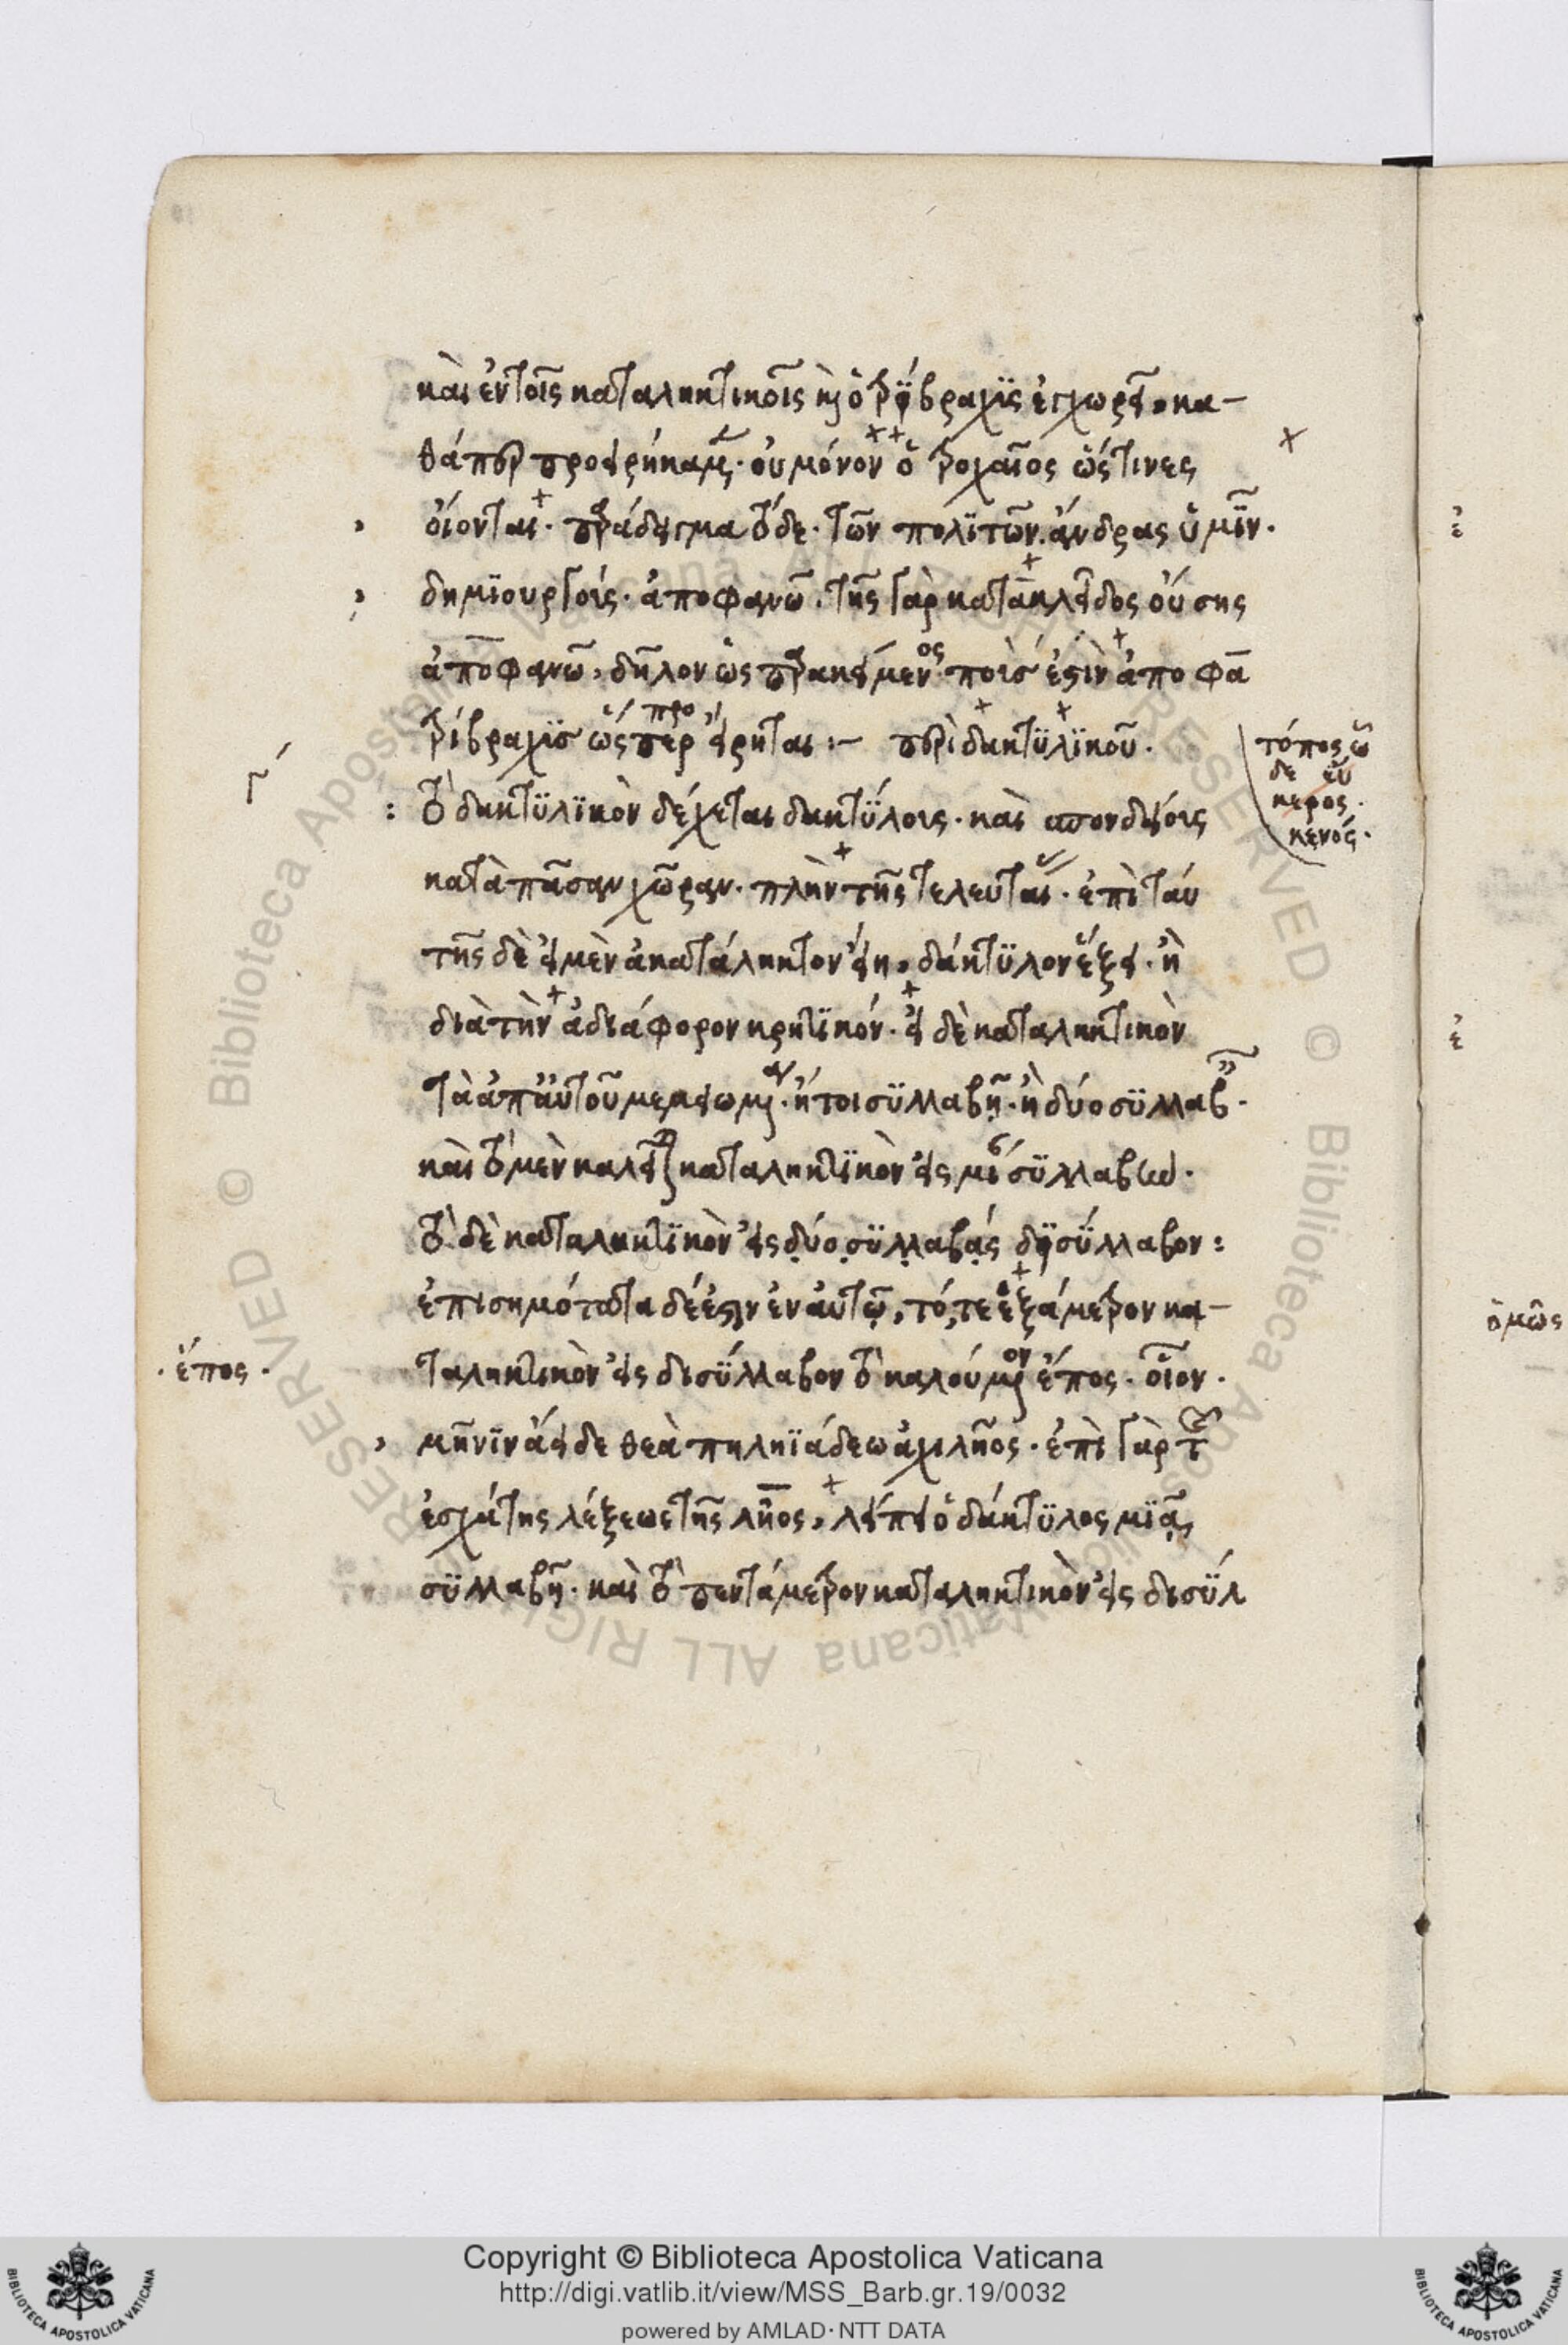 καὶ ἐν τοῖς καταληκτικοῖς καὶ ὁ τρίβραχϋς ἐγχωρεῖ, κα-
θάπερ προειρήκαμεν· οὐ μόνον ὁ τροχαῖος ὥς τινες
οἴονται· παράδειγμα τόδε· τῶν πολϊτῶν ἄνδρας ὑμῖν·
δημϊουργοῖς· ἀποφανῶ· τῆς γὰρ κατακλεῖδος οὔσης
ἀποφανῶ, δῆλον ὡς παρακείμενος ποὺσ ἐστὶν ἀποφα
τρίβραχϋσ ὥς περ προείρηται :– περὶ δακτϋλϊκοῦ·
γ´
τόπος ὧ
δε εὖ
κερος·
κενός·
: τὸ δακτϋλϊκὸν δέχεται δακτΰλοις· καὶ σπονδείοις
κατὰ πᾶσαν χῶραν· πλὴν τῆς τελευταίας· ἐπὶ ταύ
της δὲ εἰ μὲν ἀκατάληκτον εἴη, δάκτϋλον ἕξει· ἢ
διὰ τὴν ἀδιάφορον κρητϊκόν· εἰ δὲ καταληκτικὸν
τὰ ἀπ' αὐτοῦ μεμειωμένα· ἤτοι συλλαβῇ· ἢ δύο συλλαβαῖς·
καὶ τὸ μὲν καλεῖται καταληκτϊκὸν εἰς συλλαβήν·
τὸ δὲ καταληκτϊκὸν εἰς δύο συλλαβάς δϊσΰλλαβον :
ἐπισημότατα δέ ἐστιν ἐν αὐτῷ, τό, τε ἑξάμετρον κα-
· ἔπος ·
ταληκτικὸν εἰς δισΰλλαβον τὸ καλούμενον ἔπος· οἷον·
μῆνϊν ἄειδε θεὰ πηληϊάδεω ἀχιλῆος· ἐπὶ γὰρ τῆς
ἐσχάτης λέξεως τῆς λῆος, λείπει ὁ δάκτϋλος μϊᾷ,
σϋλλαβῇ· καὶ τὸ πεντάμετρον καταληκτικὸν εἰς δισΰλ
ὁμῶς
Copyright © Biblioteca Apostolica Vaticana
http://digi.vatlib.it/view/MSS_Barb.gr.19/0032
powered by AMLAD·NTT DATA